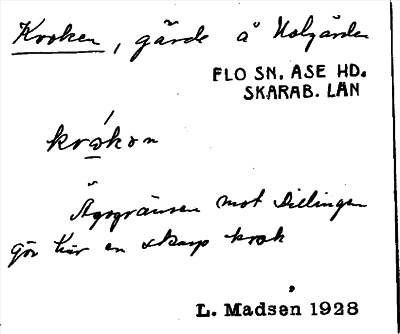 Kroken, gärde å Nolgården
FLO SN. ASE HD.
SKARAB. LÄN
krokon
Ägogränsen mot Dillingen
gör här en skarp krok
L. Madsen 1928